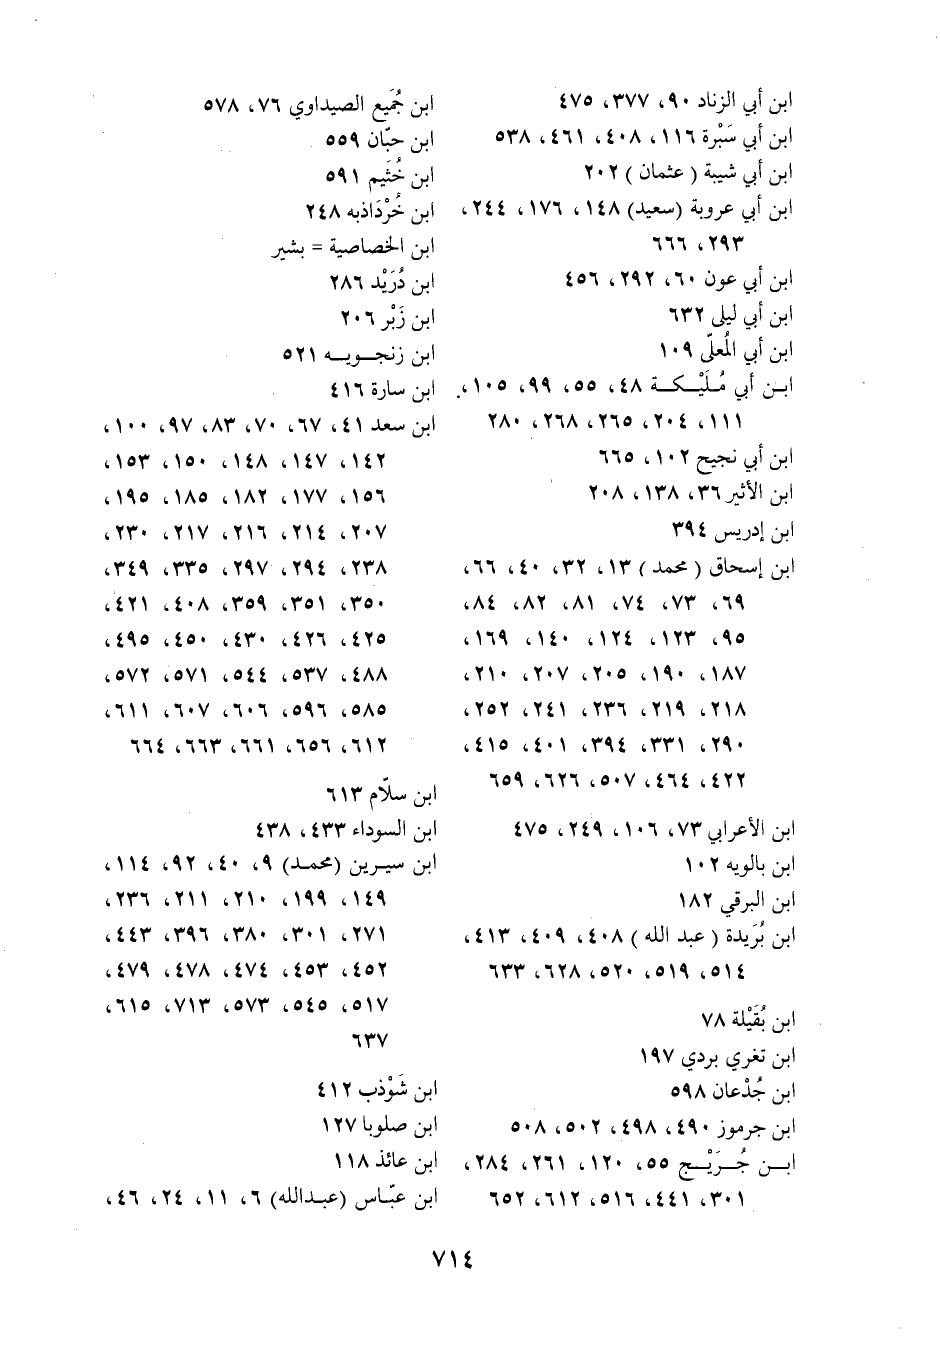 ابن أبي الزناد ٩٠، ٣٧٧، ٤٧٥
ابن أبي سَبْرة ١١٦، ٤٠٨، ٤٦١، ٥٣٨
ابن أبي شيبة ( عثمان ) ٢٠٢
ابن أبي عروبة (سعيد) ١٤٨، ١٧٦، ٢٤٤،
٢٩٣، ٦٦٦
ابن أبي عون ٦٠، ٢٩٢، ٤٥٦
ابن أبي ليلى ٦٣٢
ابن أبي المُعلّى ١٠٩
ابن أبي مُلَيْكة ٤٨، ٥٥، ٩٩، ١٠٥،
١١١، ٢٠٤، ٢٦٥، ٢٦٨، ٢٨٠
ابن أبي نجيح ١٠٢، ٦٦٥
ابن الأثير ٣٦، ١٣٨، ٢٠٨
ابن إدريس ٣٩٤
ابن إسحاق ( محمد ) ١٣، ٣٢، ٤٠، ٦٦،
٦٩، ٧٣، ٧٤، ٨١، ٨٢، ٨٤،
٩٥، ١٢٣، ١٢٤، ١٤٠، ١٦٩،
١٨٧، ١٩٠، ٢٠٥، ٢٠٧، ٢١٠،
٢١٨، ٢١٩، ٢٣٦، ٢٤١، ٢٥٢،
٢٩٠، ٣٣١، ٣٩٤، ٤٠١، ٤١٥،
٤٢٢، ٤٦٤، ٥٠٧، ٦٢٦، ٦٥٩
ابن الأعرابي ٧٣، ١٠٦، ٢٤٩، ٤٧٥
ابن بالويه ١٠٢
ابن البرقي ١٨٢
ابن بُرَيدة ( عبد الله ) ٤٠٨، ٤٠٩، ٤١٣،
٥١٤، ٥١٩، ٥٢٠، ٦٢٨، ٦٣٣
ابن بُقَيْلة ٧٨
ابن تغري بردي ١٩٧
ابن جُدْعان ٥٩٨
ابن جرموز ٤٩٠، ٤٩٨، ٥٠٢، ٥٠٨
ابن جُرَيْج ٥٥، ١٢٠، ٢٦١، ٢٨٤،
٣٠١، ٤٤١، ٥١٦، ٦١٢، ٦٥٢
ابن جُمَيع الصيداوي ٧٦، ٥٧٨
ابن حبّان ٥٥٩
ابن خُثَيم ٥٩١
ابن خُرْدَاذبه ٢٤٨
ابن الخصاصية = بشير
ابن دُرَيْد ٢٨٦
ابن زَبْر ٢٠٦
ابن زنجويه ٥٢١
ابن سارة ٤١٦
ابن سعد ٤١، ٦٧، ٧٠، ٨٣، ٩٧، ١٠٠،
١٤٢، ١٤٧، ١٤٨، ١٥٠، ١٥٣،
١٥٦، ١٧٧، ١٨٢، ١٨٥، ١٩٥،
٢٠٧، ٢١٤، ٢١٦، ٢١٧، ٢٣٠،
٢٣٨، ٢٩٤، ٢٩٧، ٣٣٥، ٣٤٩،
٣٥٠، ٣٥١، ٣٥٩، ٤٠٨، ٤٢١،
٤٢٥، ٤٢٦، ٤٣٠، ٤٥٠، ٤٩٥،
٤٨٨، ٥٣٧، ٥٤٤، ٥٧١، ٥٧٢،
٥٨٥، ٥٩٦، ٦٠٦، ٦٠٧، ٦١١،
٦١٢، ٦٥٦، ٦٦١، ٦٦٣، ٦٦٤
ابن سلّام ٦١٣
ابن السوداء ٤٣٣، ٤٣٨
ابن سيرين (محمد) ٩، ٤٠، ٩٢، ١١٤،
١٤٩، ١٩٩، ٢١٠، ٢١١، ٢٣٦،
٢٧١، ٣٠١، ٣٨٠، ٣٩٦، ٤٤٣،
٤٥٢، ٤٥٣، ٤٧٤، ٤٧٨، ٤٧٩،
٥١٧، ٥٤٥، ٥٧٣، ٧١٣، ٦١٥،
٦٣٧
ابن شَوْذب ٤١٢
ابن صلوبا ١٢٧
ابن عائذ ١١٨
ابن عبّاس (عبدالله) ٦، ١١، ٢٤، ٤٦،
٧١٤